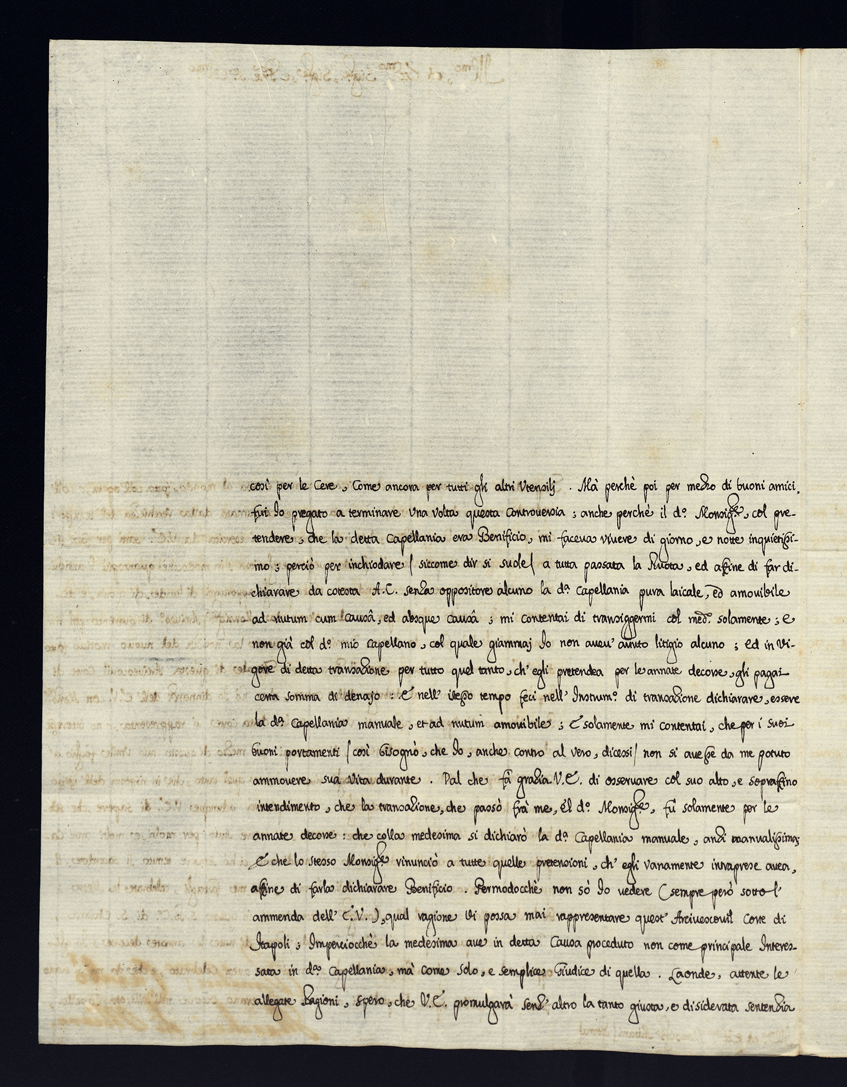 così per le Cere, Come ancora per tutti gli altri Vtensilj . Mà perchè poi per mezzo di buoni amici,
fui Io pregato a terminare Una volta questa Controversia ; anche perchè il d.º Monsig.re, col pre-
tendere, che la detta Capellania era Benificio, mi faceva vivere di giorno, e notte inquietissi-
mo ; perciò per inchiodare / siccome dir si suole / a tutta passata la Ruota, ed affine di far di-
chiarare da cotesta A.C. senza oppositore alcuno la d.ª Capellania pura laicale, ed amovibile
ad nutum cum causâ, ed absque causâ ; mi contentai di transiggermi col med.º solamente ; e
non già col d.º mio Capellano, col quale giammaj Io non aveu' avuto litigio alcuno ; ed in Vi-
gore di detta transazione per tutto quel tanto, ch' egli pretendea per le annate decorse, gli pagai
certa somma di denajo : E nell' istesso tempo feci nell' Instrum.º di transazione dichiarare, essere
la d.ª Capellania manuale, et ad nutum amovibile ; E solamente mi contentai, che per i suoi
buoni portamenti / così bisognò, che Io, anche contro al vero, dicessi / non si avesse da me potuto
ammovere sua Vita durante . Dal che fà grazia V.E. di osservare col suo alto, e soprafino
intendimento, che la transazione, che passò frà me, e'l d.º Monsig.re, fù solamente per le
annate decorse : che colla medesima si dichiarò la d.ª Capellania manuale, anzi manualissima;
E che lo stesso Monsig.re rinunciò a tutte quelle pretensioni, ch' egli vanamente intraprese avea,
affine di farla dichiarare Benificio . Permodocchè non sò Io vedere ( sempre però sotto l'
ammenda dell' E.V. ), qual ragione vi possa mai rappresentare quest' Arcivescovil Corte di
Napoli ; Imperciocchè la medesima ave in detta Causa proceduto non come principale Interes-
sata in d.ª Capellania, mà come solo, e semplice Giudice di quella . Laonde, attente le
allegate Ragioni, spero, che V.E. promulgarà senz' altro la tanto giusta, e disiderata sentenzia